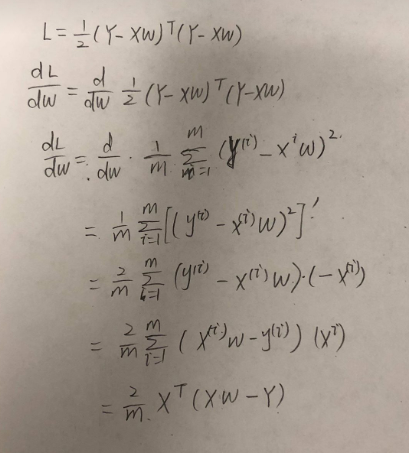 L = ½ (Y - XW)ᵀ (Y - XW)
dL/dw = d/dw ½ (Y - XW)ᵀ (Y - XW)
dL/dw = d/dw · 1/m ∑_{i=1}^{m} (y⁽ⁱ⁾ - xⁱ w)²
= 1/m ∑_{i=1}^{m} [(y⁽ⁱ⁾ - x⁽ⁱ⁾ w)²]′
= 2/m ∑_{i=1}^{m} (y⁽ⁱ⁾ - x⁽ⁱ⁾ w)·(-x⁽ⁱ⁾)
= 2/m ∑_{i=1}^{m} (x⁽ⁱ⁾ w - y⁽ⁱ⁾) (xⁱ)
= 2/m Xᵀ (XW - Y)